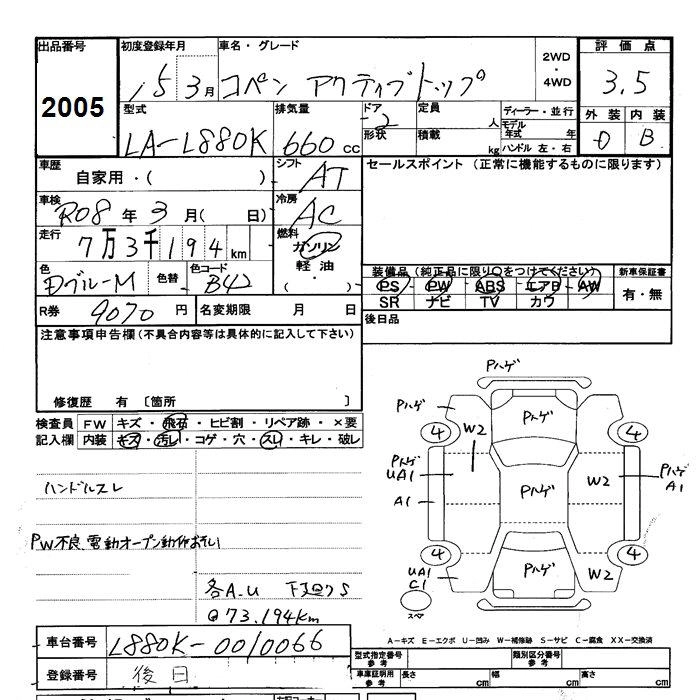 出品番号
2005
初度登録年月
15 3月
車名・グレード
コペン アクティブトップ
2WD
・
4WD
評価点
3.5
外装 内装
D B
型式
LA-L880K
排気量
660cc
ドア
-2
形状
定員
人
積載
kg
ディーラー・並行
モデル
年式 年
ハンドル 左・右
車歴
自家用・( )
シフト
AT
セールスポイント (正常に機能するものに限ります)
車検
R08年3月( 日)
冷房
AC
走行
7万3千194km
燃料
ガソリン
軽油
・
( )
色
DブルーM
色替
色コード
B42
装備品 (純正品に限り○をつけてください)
PS PW ABS エアB AW
SR ナビ TV カワ
新車保証書
有・無
R券 9070円
名変期限 月 日
後日品
注意事項申告欄(不具合内容等は具体的に記入して下さい)
修復歴 有 〔箇所 〕
検査員 FW キズ・飛石・ヒビ割・リペア跡・×要
記入欄 内装 キズ・汚レ・コゲ・穴・スレ・キレ・破レ
ハンドルスレ
PW不良 電動オープン動作おそい
各A.U 下廻りS
@73,194km
Pハゲ
Pハゲ
Pハゲ
4
4
W2
Pハゲ
UA1
A1
Pハゲ
W2
Pハゲ
A1
4
4
UA1
C1
Pハゲ
W2
スペア
Pハゲ
A-キズ E-エクボ U-凹み W-補修跡 S-サビ C-腐食 XX-交換済
車台番号 L880K-0010066
登録番号 後日
型式指定番号
参考
類別区分番号
参考
車庫証明用
参考
長さ cm 幅 cm 高さ cm